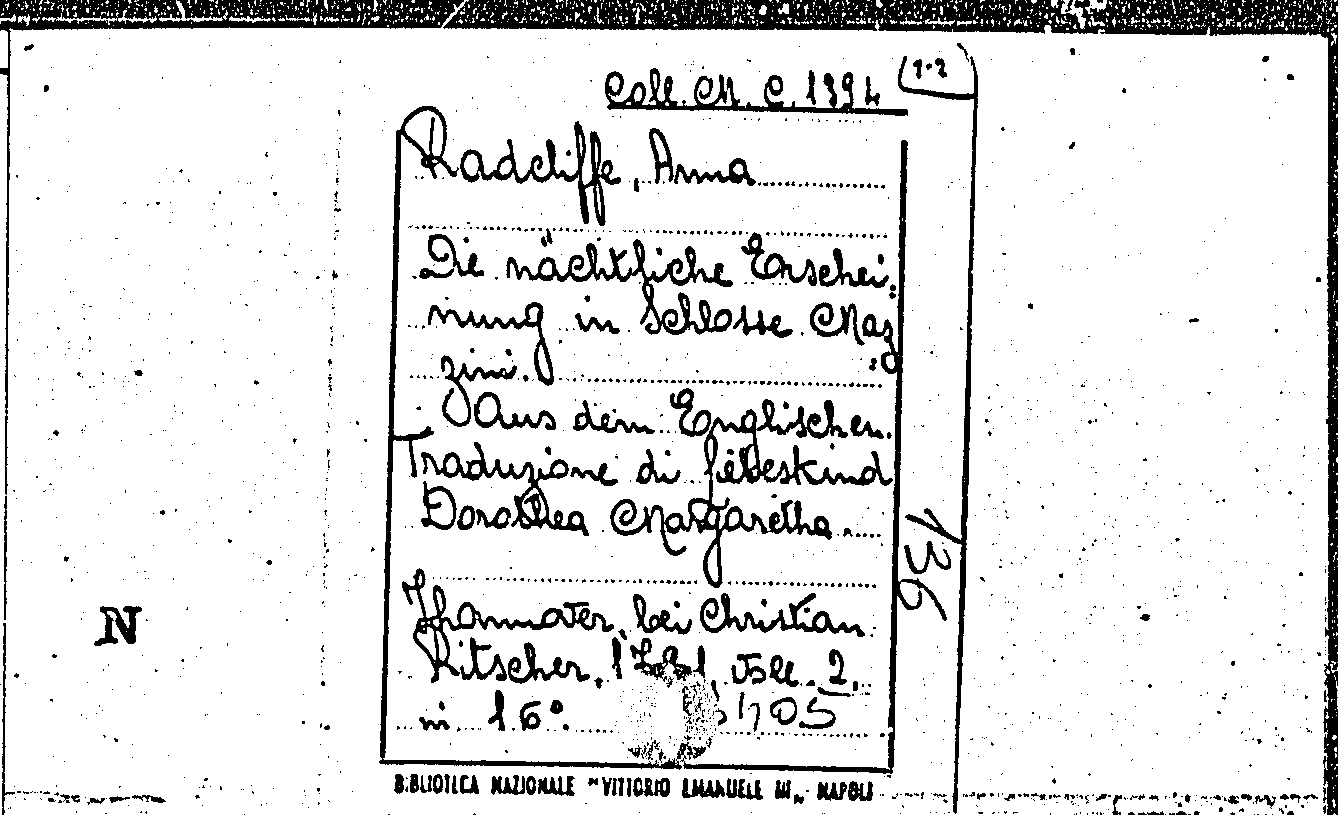 (1-2
Coll. M. C. 1394
Radcliffe, Anna
Die nächtliche Erschei:
nung in Schlosse Maz:
zini.
Aus dem Englischen.
Traduzione di liebeskind
Dorothea Margaretha.
Hannover, bei Christian
Ritscher, voll. 2.
in 16°.
136
N
BIBLIOTECA NAZIONALE "VITTORIO EMANUELE III" - NAPOLI